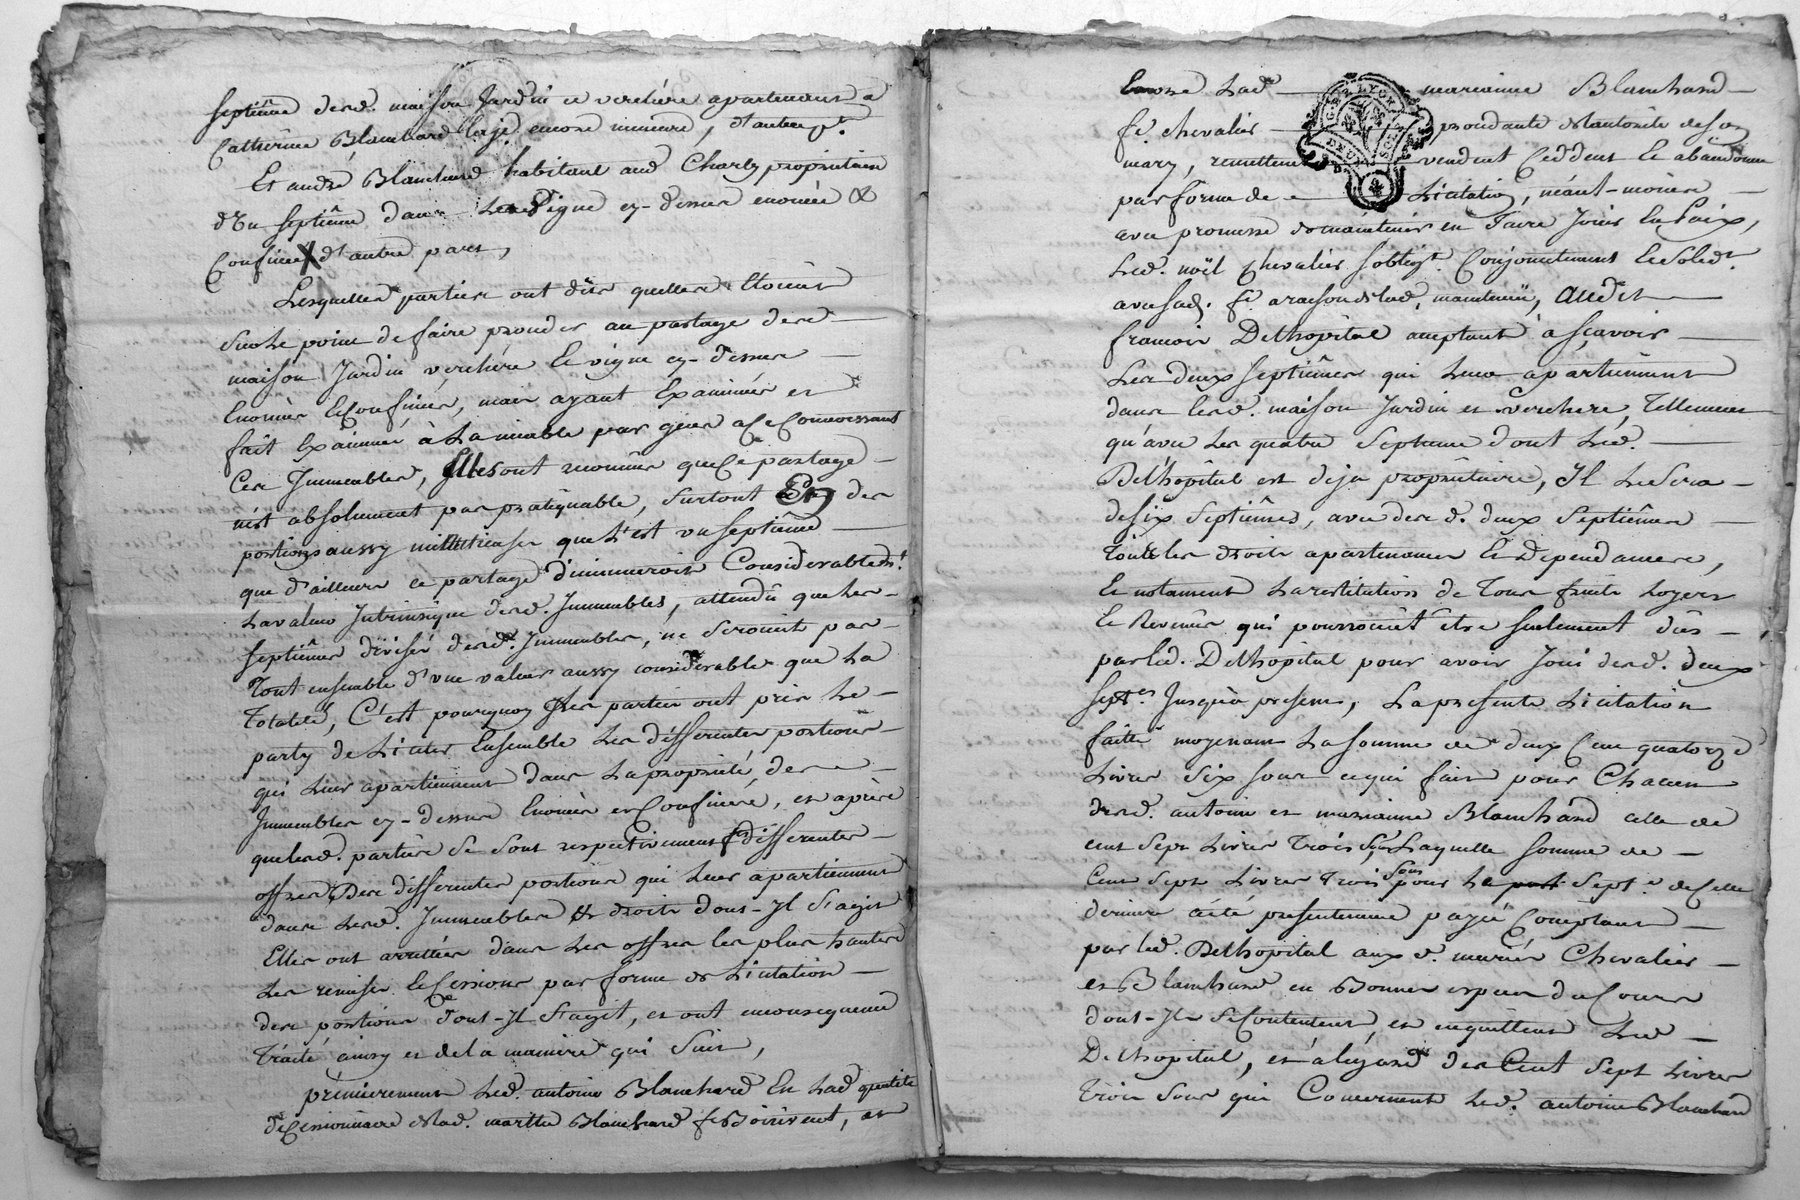 septiême desd. maison Jardin et verchere apartenant a
Catherine Blanchard lad. encore mineure, d'autre pt.
Et andré Blanchard habitant aud Charly proprietaire
d'Un septiême dans La Vigne cy-dessus enoncée &
Confinée d'autre part,
Lesquelles parties ont dit quelles Etoient
Sur le point de faire proceder au partage desd
maison Jardin verchére Et vigne cy-dessus
Enoncés & Confinés, mais ayant Examinés et
fait Examiner à Lamiable par gens a Ce Connoissant
Ces Immeubles, Elles ont reconnu que Ce partage
n'est absolument pas pratiquable, surtout En des
portions aussy minutieuses que L'est un septiême
que d'ailleurs ce partage diminueroit Considerablemt.
La valeur Intrinsique desd. Immeubles, attendu que Les
septiêmes divisés desd. Immeubles, ne seroient pas
Tout ensemble d'une valeur aussy considerable que La
Totalité, C'est pourquoy Les parties ont pris Le
party de Liciter Ensemble Les differentes portions
qui Leurs apartiennent dans La proprieté des
Immeubles cy-dessus Enoncés et Confinés, et après
que lesd. parties Se Sont respectivement differentes
offres Des differentes portions qui Leurs apartiennent
dans Lesd. Immeubles & droits dont-Il S'agit
Elles ont arrettées dans Les offres les plus hautes
Les remises & Cessions par forme de Licitation
des portions dont-Il S'agit, et ont enconsequence
Traité ainsy et de la maniere qui Suit,
prémierement Led. antoine Blanchard En Lad qualité
de Cessionnaire de lad. marthe Blanchard fe Boirivent, et
Lad marianne Blanchard
fe. Chevalier procedante de lautorité de son
mary, remettent vendent Ceddent Et abandonnent
par forme de Licitation, néant-moins
avec promesse de maintenir en Faire Jouir En Paix,
Led. noël Chevalier s'obligt. Conjointement Et Solidt.
avec sad. fe a raison de lad. maintenüe, Audit
francois Delhopital acceptant a sçavoir
Les deux septiêmes qui Leurs apartiennent
dans lesd. maison Jardin et verchere, Tellement
qu'avec Les quatre Septieme dont Led.
Delhopital est deja proprietaire, Il Le Sera
de six Septiêmes, avec desd. deux Septiêmes
Tous les droits apartenances Et Dependances,
Et notament La restitution de Tous fruits Loyers
Et Revenus qui pourroient être seulement dus
par led. Delhopital pour avoir Joui desd. deux
septes Jusqu'à present, La presente Licitation
faitte moyenant La somme de deux Cent quatorze
Livres Six Sous ce qui fait pour Chacun
desd. antoine et marianne Blanchard celle de
cent sept Livres Trois Sous Laquelle somme de
Cent Sept Livres Trois Sous pour Le Septe. de Cette
derniere a été presentement payée Comptant
par led. Delhopital auxd. mariés Chevalier
et Blanchard en Bonnes especes du Cours
dont-Ils Se Contentent, et enquittent Led
Delhopital, et à l'égard des Cent Sept Livres
Trois Sous qui Concernent Led. antoine Blanchard